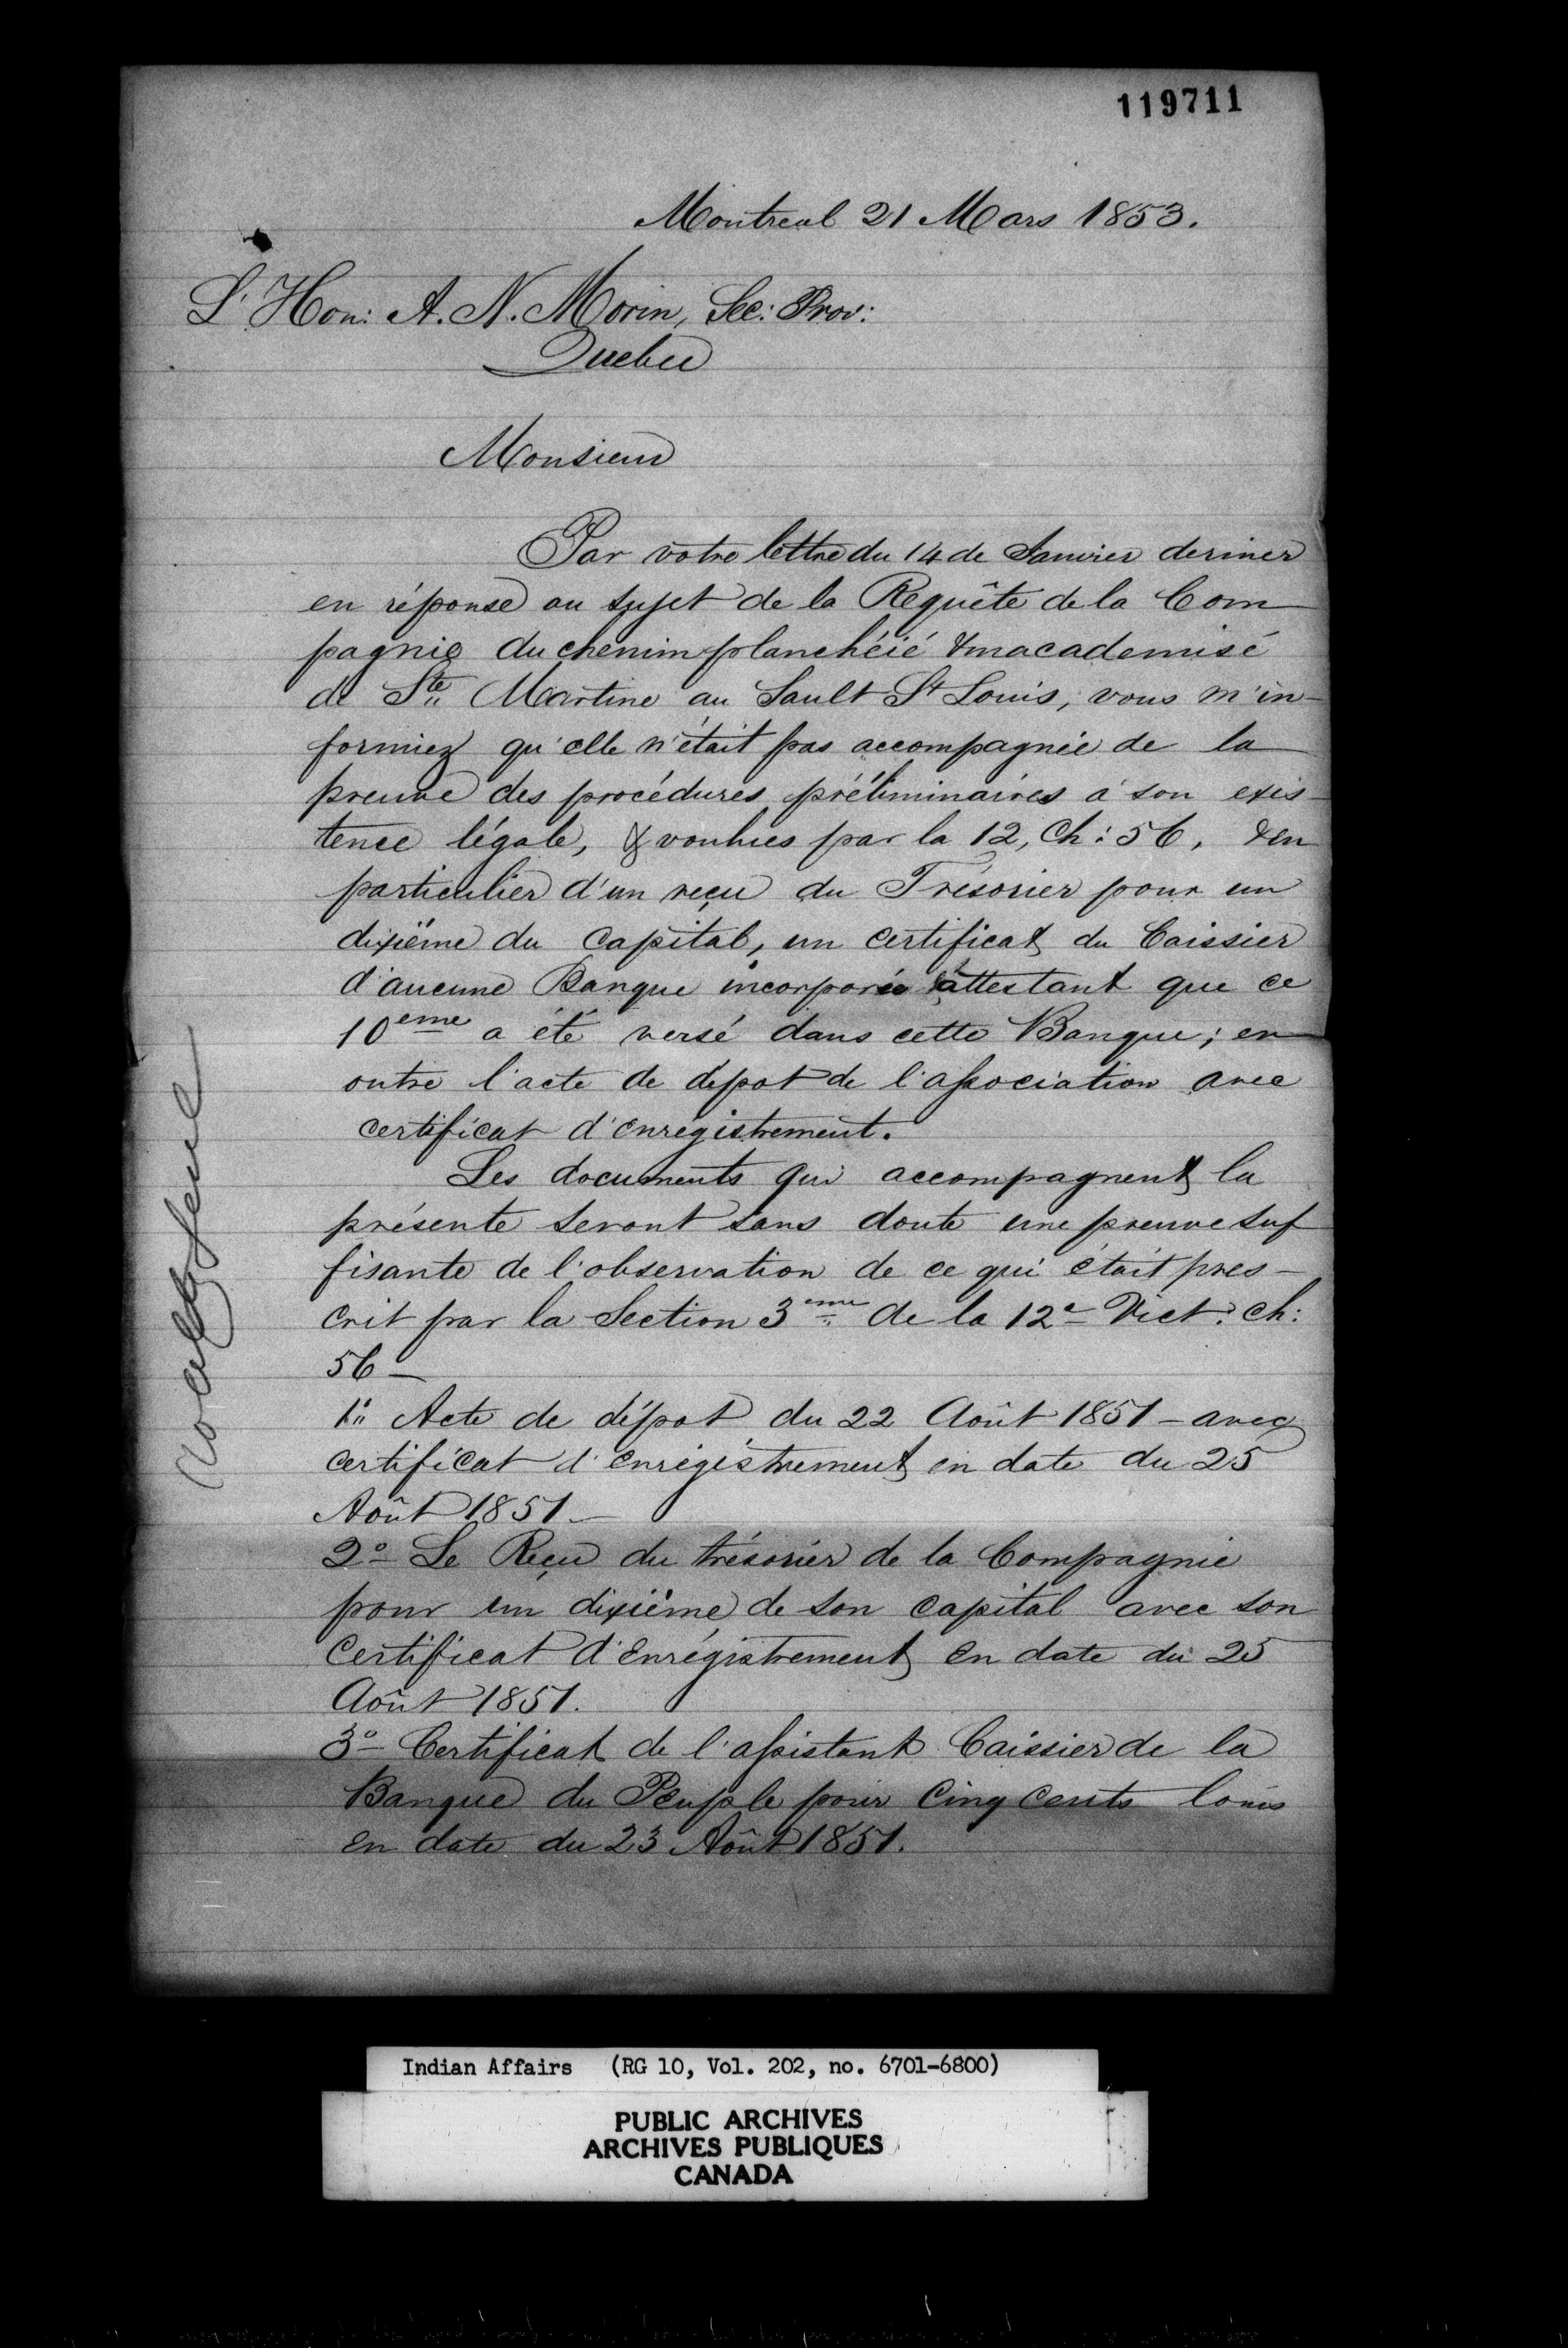 119711
Montreal 21 Mars 1853.
L'Hon: A. N. Morin, Sec: Prov:
Quebec
Monsieur
Par votre lettre du 14 de Janvier dernier
en réponse au sujet de la Requête de la Com
pagnie du chemin planchéié & macademisé
de Ste Martine au Sault St Louis, vous m'in-
formiez qu'elle n'était pas accompagnée de la
preuve des procédures préliminaires à son exis-
tence légale, & voulues par la 12, Ch: 56, & en
particulier d'un reçu du Trésorier pour un
dixième du Capital, un certificat du Caissier
d'aucune Banque incorporée attestant que ce
10eme a été versé dans cette Banque; en
outre l'acte de dépot de l'association avec
certificat d'enregistrement.
Les documents qui accompagnent la
présente seront sans doute une preuve suf
fisante de l'observation de ce qui était pres-
crit par la Section 3eme de la 12e Vict: ch:
56 —
1o Acte de dépot du 22 Août 1851 - avec
certificat d'enrégistrement en date du 25
Août 1851 —
2o Le Reçu du trésorier de la Compagnie
pour un dixième de son capital avec son
Certificat d'Enrégistrement en date du 25
Août 1851.
3o Certificat de l'assistant Caissier de la
Banque du Peuple pour Cinq Cents louis
en date du 23 Août 1851.
Indian Affairs (RG 10, Vol. 202, no. 6701-6800)
PUBLIC ARCHIVES
ARCHIVES PUBLIQUES
CANADA